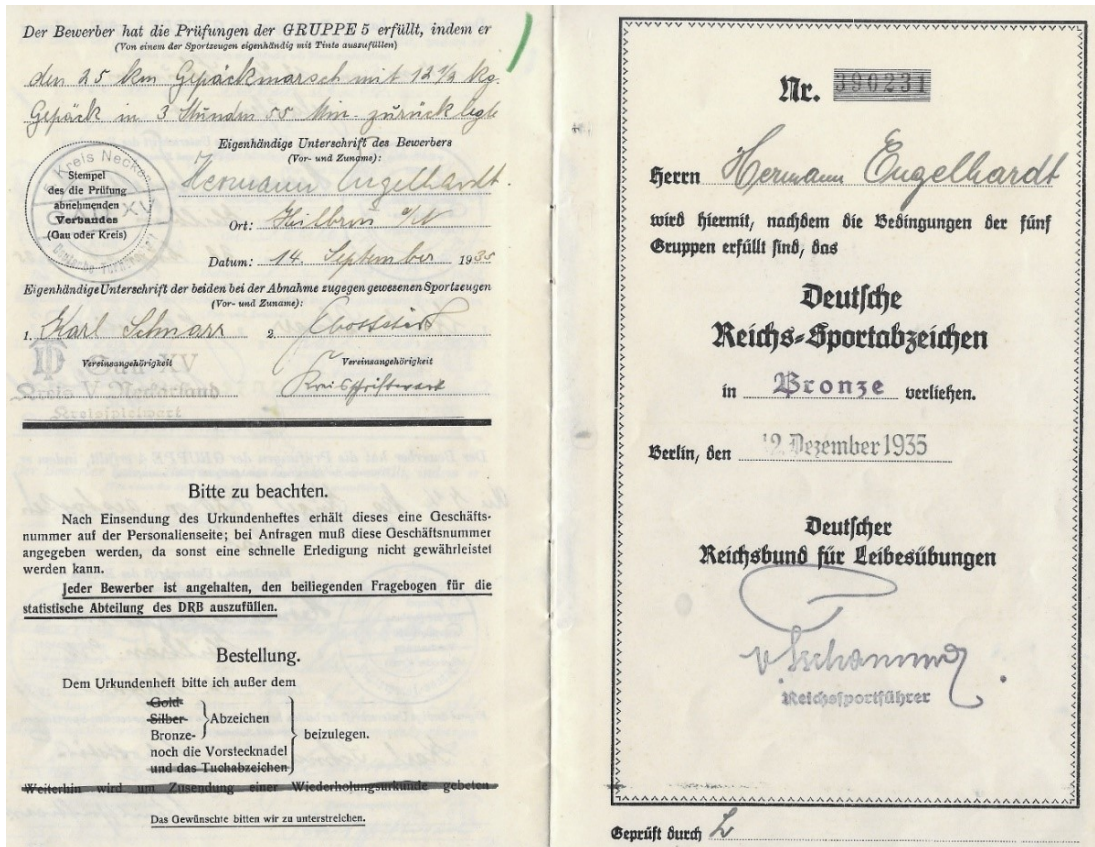 Der Bewerber hat die Prüfungen der GRUPPE 5 erfüllt, indem er
(Von einem der Sportzeugen eigenhändig mit Tinte auszufüllen)
den 25 km Gepäckmarsch mit 12½ kg.
Gepäck in 3 Stunden 55 Min. zurück legte
Eigenhändige Unterschrift des Bewerbers
(Vor- und Zuname):
Hermann Engelhardt.
Kreis Neckar
Stempel
des die Prüfung
abnehmenden
Verbandes
(Gau oder Kreis)
XV
Deutsche Turner
Ort: Heilbron a/N
Datum: 14. September 1935
Eigenhändige Unterschrift der beiden bei der Abnahme zugegen gewesenen Sportzeugen
(Vor- und Zuname):
1. Karl Schnarr 2.
Vereinsangehörigkeit Vereinsangehörigkeit
Gau XV
Kreis V Neckarland
Kreisspielwart
Kreisschriftwart
Bitte zu beachten.
Nach Einsendung des Urkundenheftes erhält dieses eine Geschäfts-
nummer auf der Personalienseite; bei Anfragen muß diese Geschäftsnummer
angegeben werden, da sonst eine schnelle Erledigung nicht gewährleistet
werden kann.
Jeder Bewerber ist angehalten, den beiliegenden Fragebogen für die
statistische Abteilung des DRB auszufüllen.
Bestellung.
Dem Urkundenheft bitte ich außer dem
Gold-
Silber- Abzeichen
Bronze-
noch die Vorstecknadel
und das Tuchabzeichen
beizulegen.
Weiterhin wird um Zusendung einer Wiederholungsurkunde gebeten
Das Gewünschte bitten wir zu unterstreichen.
Nr. 390231
Herrn Hermann Engelhardt
wird hiermit, nachdem die Bedingungen der fünf
Gruppen erfüllt sind, das
Deutsche
Reichs-Sportabzeichen
in Bronze verliehen.
Berlin, den 12. Dezember 1935
Deutscher
Reichsbund für Leibesübungen
v. Tschammer
Reichssportführer
Geprüft durch L